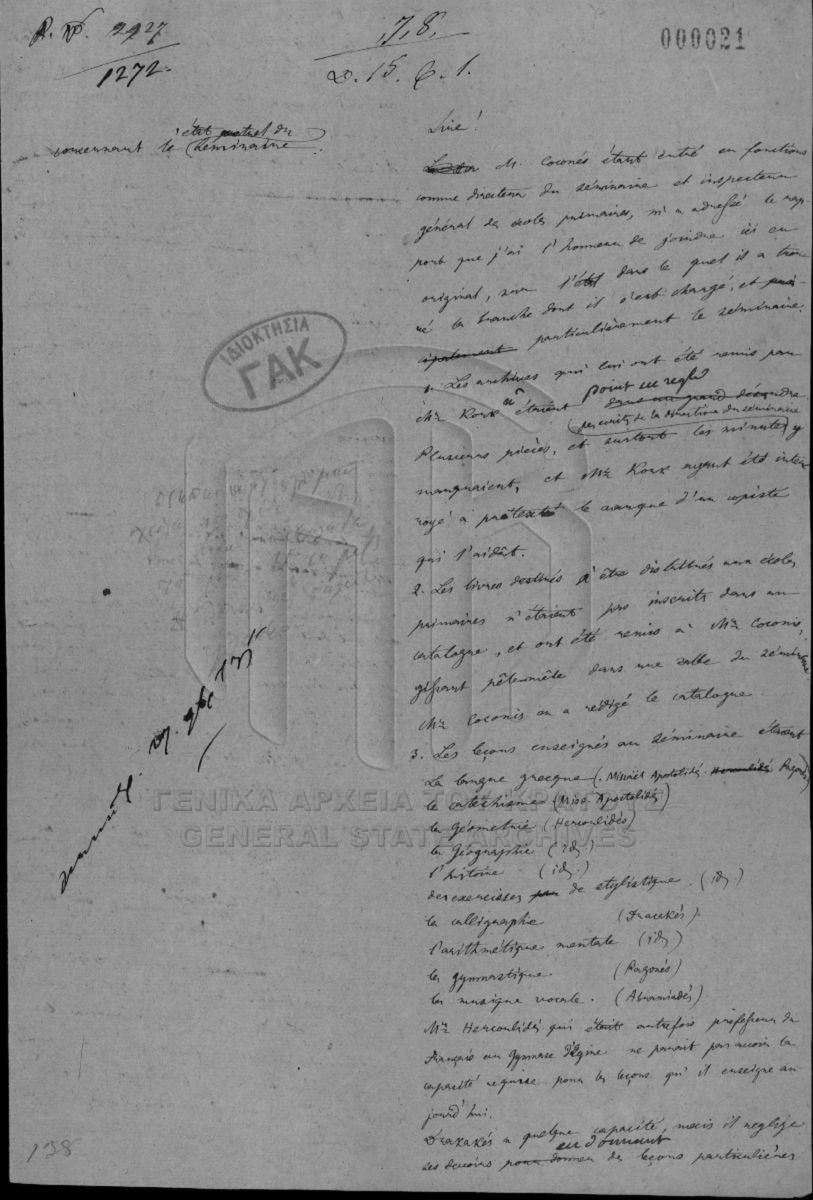 P. No. 2227
1272.
7,8,
D. 15. C. 1.
000021
concernant le séminaire.
état actuel du
Sire!
M. Coconés étant entré en fonctions
comme directeur du séminaire et inspecteur
général des écoles primaires, m'a adressé le rap-
port que j'ai l'honneur de joindre ici en
original, sur l'état dans le quel il a trou-
vé la branche dont il s'est chargé, et
particulièrement le séminaire.
1. Les archives qui lui ont été remis par
Mr. Kork étaient point en règle
des écrits de la direction du séminaire
Plusieurs pièces, et surtout les minutes y
manquaient, et Mr. Kork ayant été inter-
rogé a prétexté le manque d'un copiste
qui l'aidât.
2. Les livres destinés à être distribués aux écoles
primaires n'étaient pas inscrits dans un
catalogue, et ont été remis à Mr. Coconis,
gissant pêlemêle dans une salle du séminaire.
Mr. Coconis en a rédigé le catalogue.
3. Les leçons enseignés au séminaire étaient
La langue grecque (Misaël Apostolidés Herculidés Pagonés)
le catechisme (Misa. Apostolidés)
la Géometrie (Herculidés)
la Géographie (id.)
l'histoire (id.)
des exercisses de stylistique. (id.)
la calligraphe (Dracakés)
l'arithmétique mentale (id)
la gymnastique (Pagonés)
la musique vocale. (Abramiadés)
Mr. Herculidés qui était autrefois professeur du
Français au Gymnase d'Egine ne parait pas avoir la
capacité requise pour les leçons qu'il enseigne au
jourd'hui.
Drakakés a quelque capacité, mais il neglige
en donnant
ses devoirs pour donner des leçons particulières
ΙΔΙΟΚΤΗΣΙΑ
ΓΑΚ
ΓΕΝΙΚΑ ΑΡΧΕΙΑ ΤΟΥ ΚΡΑΤΟΥΣ
GENERAL STATE ARCHIVES
138